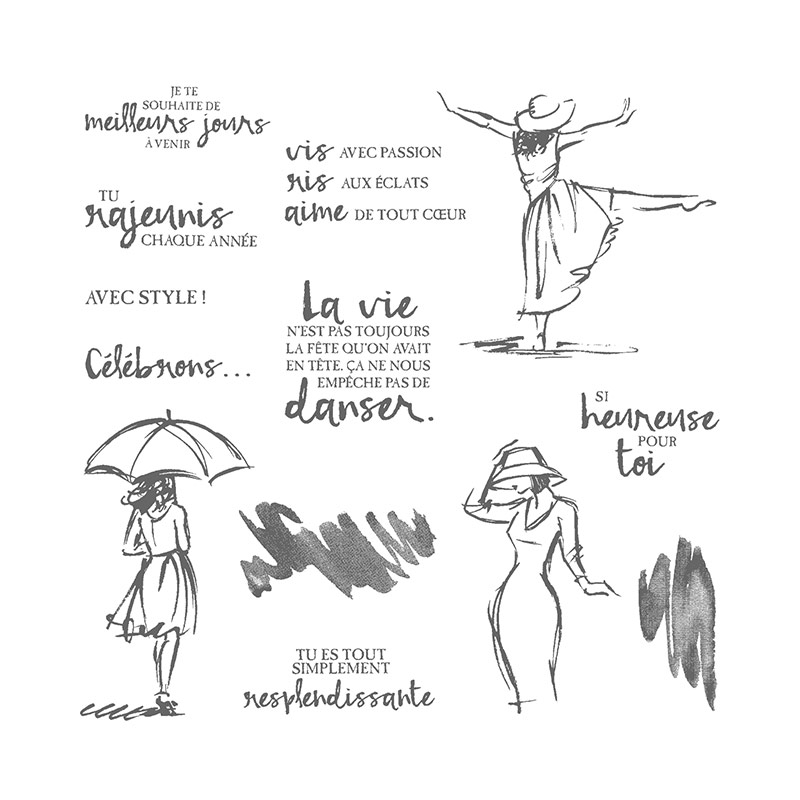 JE TE
SOUHAITE DE
meilleurs jours
À VENIR
vis AVEC PASSION
ris AUX ÉCLATS
aime DE TOUT CŒUR
TU
rajeunis
CHAQUE ANNÉE
AVEC STYLE !
Célébrons...
La vie
N'EST PAS TOUJOURS
LA FÊTE QU'ON AVAIT
EN TÊTE. ÇA NE NOUS
EMPÊCHE PAS DE
danser.
SI
heureuse
POUR
toi
TU ES TOUT
SIMPLEMENT
resplendissante